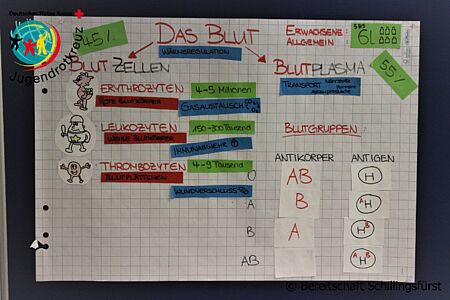 Deutsches Rotes Kreuz
Jugendrotkreuz
45%
DAS BLUT
WÄRMEREGULATION
ERWACHSENE
ALLGEMEIN
6L
BLUT ZELLEN
BLUTPLASMA
55%
TRANSPORT
ERYTHROZYTEN
4-5 Millionen
ROTE BLUTKÖRPER
GASAUSTAUSCH
LEUKOZYTEN
150-300 Tausend
WEIßE BLUTKÖRPER
IMMUNABWEHR
THROMBOZYTEN
4-9 Tausend
BLUTPLÄTTCHEN
WUNDVERSCHLUSS
BLUTGRUPPEN:
ANTIKÖRPER ANTIGEN
0 AB H
A B A H
B A H B
AB A H B
© Bereitschaft Schillingsfürst